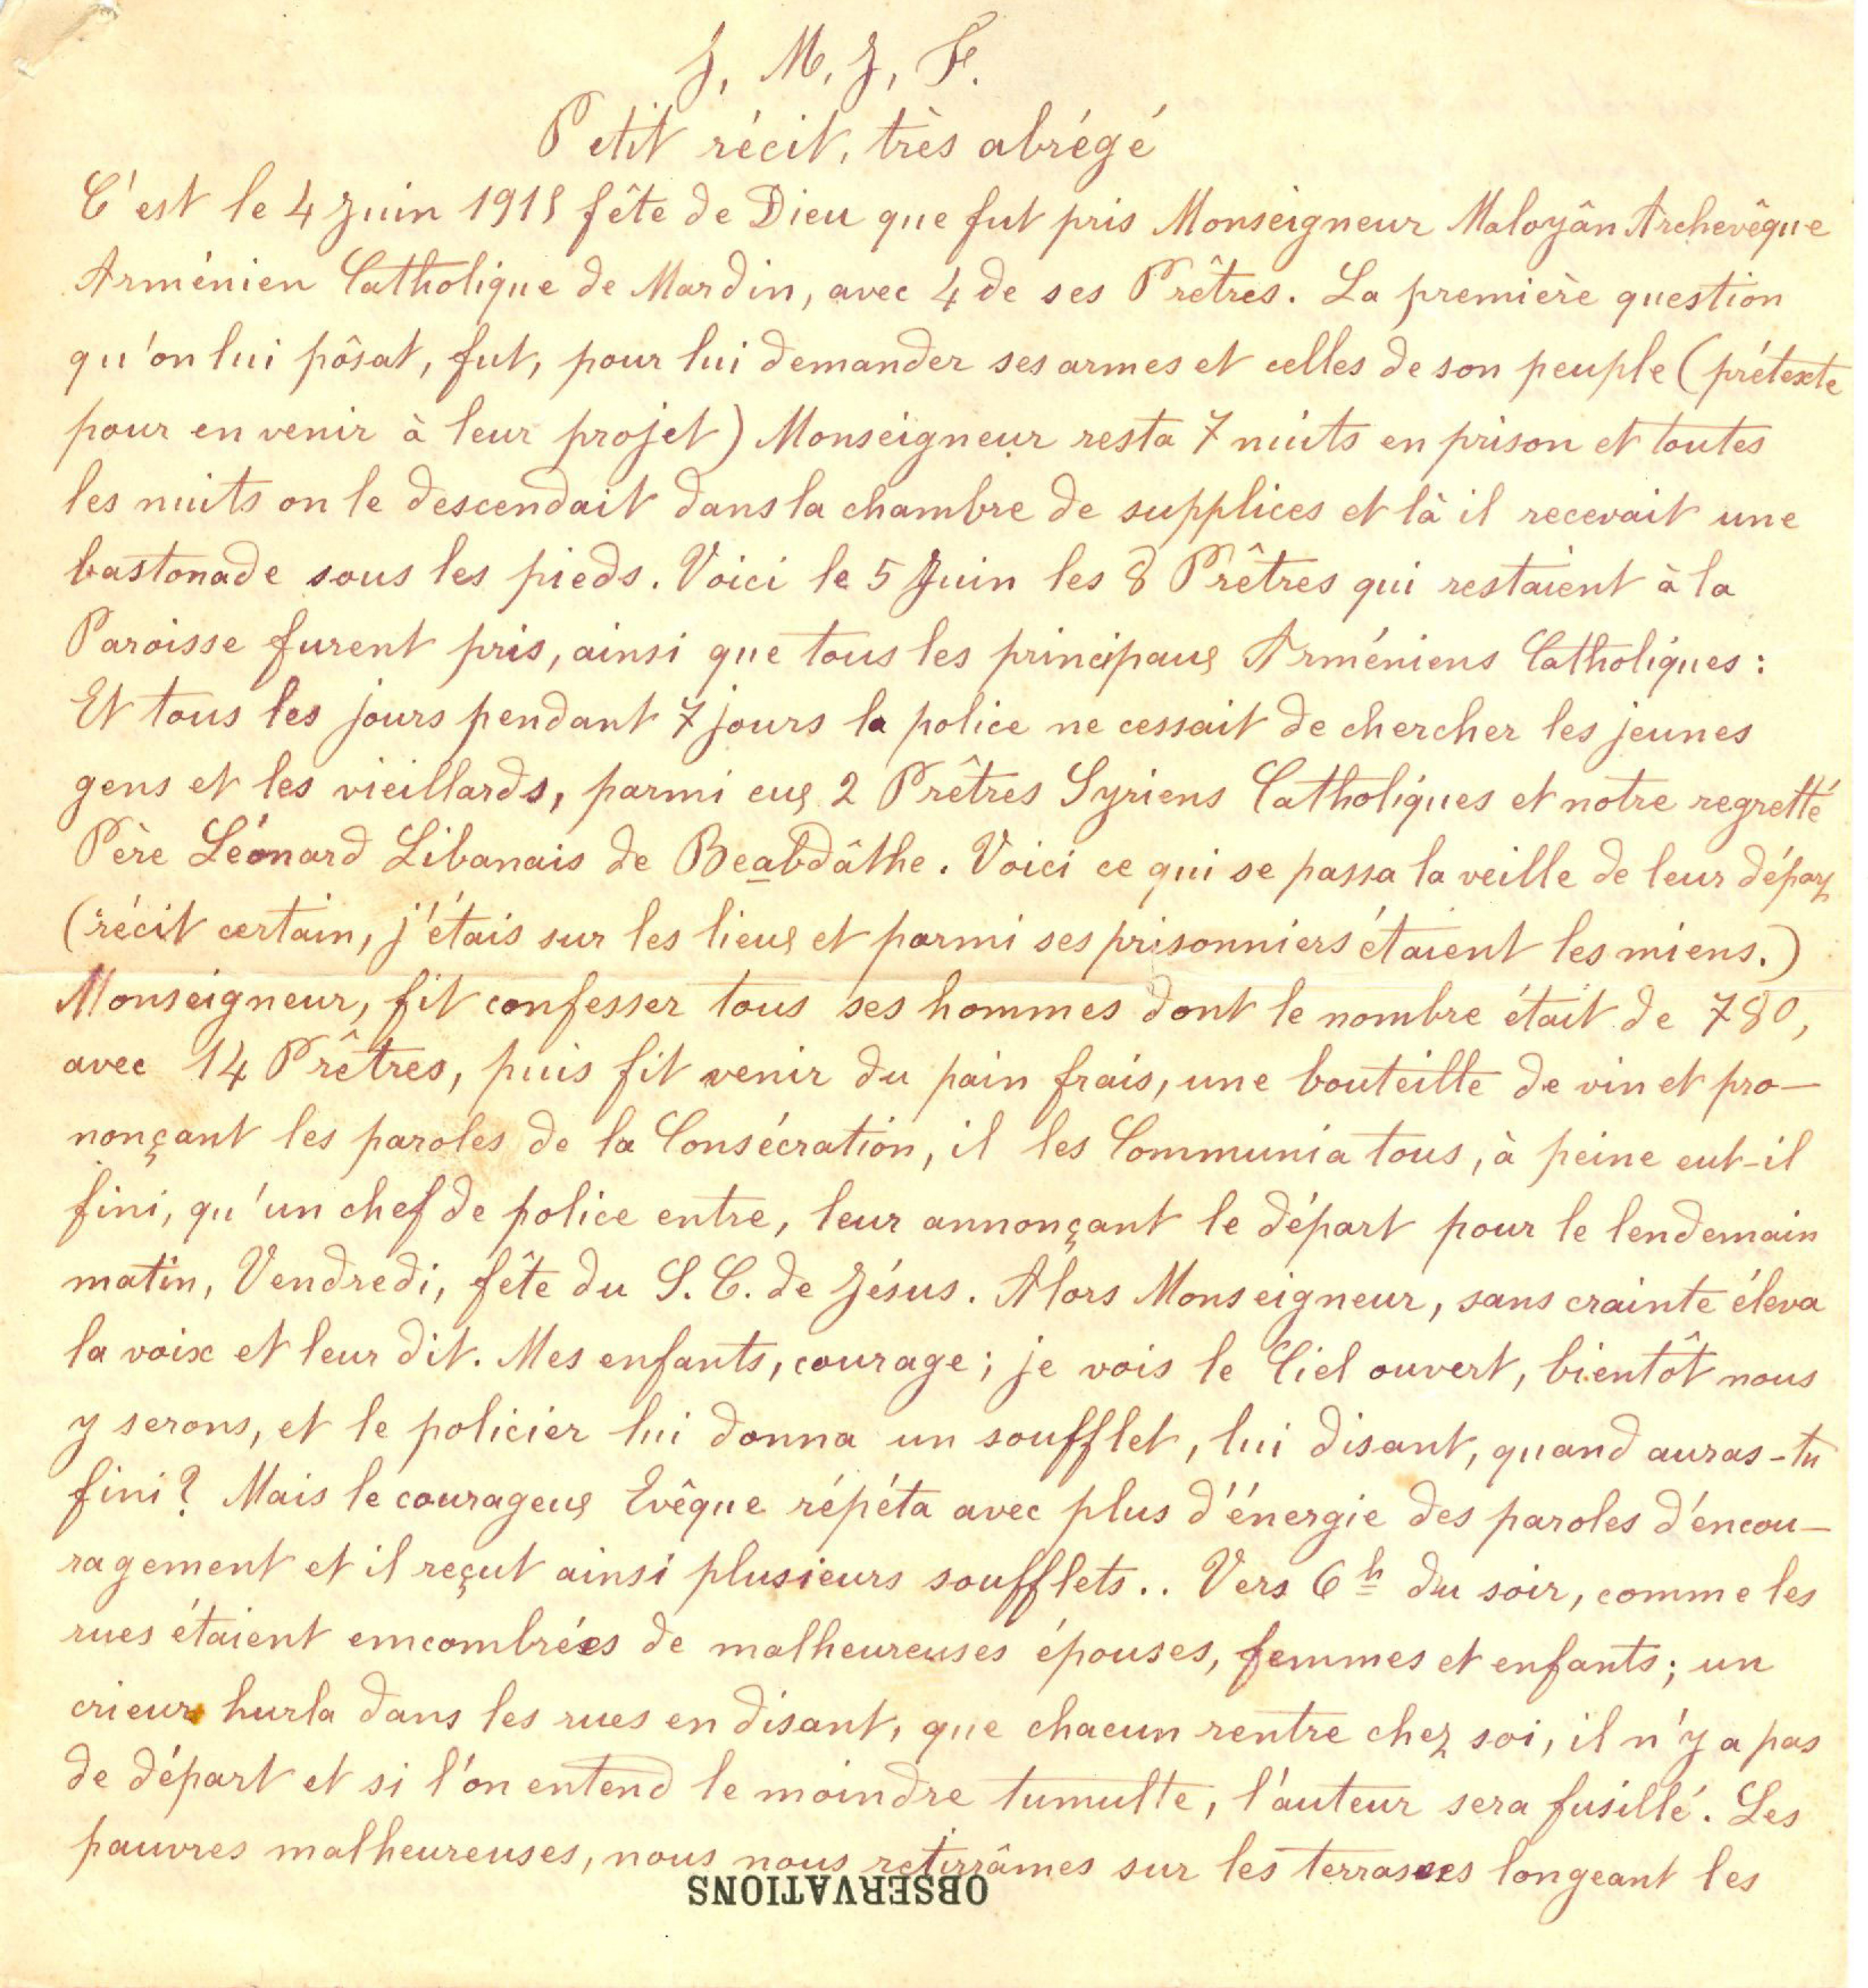 J. M. J. F.
Petit récit, très abrégé
C'est le 4 Juin 1915 fête de Dieu que fut pris Monseigneur Maloyân Archevêque
Arménien Catholique de Mardin, avec 4 de ses Prêtres. La première question
qu'on lui pôsat, fut, pour lui demander ses armes et celles de son peuple (prétexte
pour en venir à leur projet) Monseigneur resta 7 nuits en prison et toutes
les nuits on le descendait dans la chambre de supplices et là il recevait une
bastonade sous les pieds. Voici le 5 Juin les 8 Prêtres qui restaient à la
Paroisse furent pris, ainsi que tous les principaux Arméniens Catholiques :
Et tous les jours pendant 7 jours la police ne cessait de chercher les jeunes
gens et les vieillards, parmi eux 2 Prêtres Syriens Catholiques et notre regretté
Père Léonard Libanais de Beabdâthe. Voici ce qui se passa la veille de leur départ
(récit certain, j'étais sur les lieux et parmi ses prisonniers étaient les miens.)
Monseigneur, fit confesser tous ses hommes dont le nombre était de 780,
avec 14 Prêtres, puis fit venir du pain frais, une bouteille de vin et pro-
nonçant les paroles de la Consécration, il les Communia tous, à peine eut-il
fini, qu'un chef de police entre, leur annonçant le départ pour le lendemain
matin, Vendredi, fête du S. C. de Jésus. Alors Monseigneur, sans crainte éleva
la voix et leur dit. Mes enfants, courage ; je vois le Ciel ouvert, bientôt nous
y serons, et le policier lui donna un soufflet, lui disant, quand auras-tu
fini ? Mais le courageux Evêque répéta avec plus d'énergie des paroles d'encou-
ragement et il reçut ainsi plusieurs soufflets.. Vers 6h du soir, comme les
rues étaient emcombrées de malheureuses épouses, femmes et enfants ; un
crieur hurla dans les rues en disant, que chacun rentre chez soi, il n'y a pas
de départ et si l'on entend le moindre tumulte, l'auteur sera fusillé. Les
pauvres malheureuses, nous nous retirâmes sur les terrasses longeant les
OBSERVATIONS